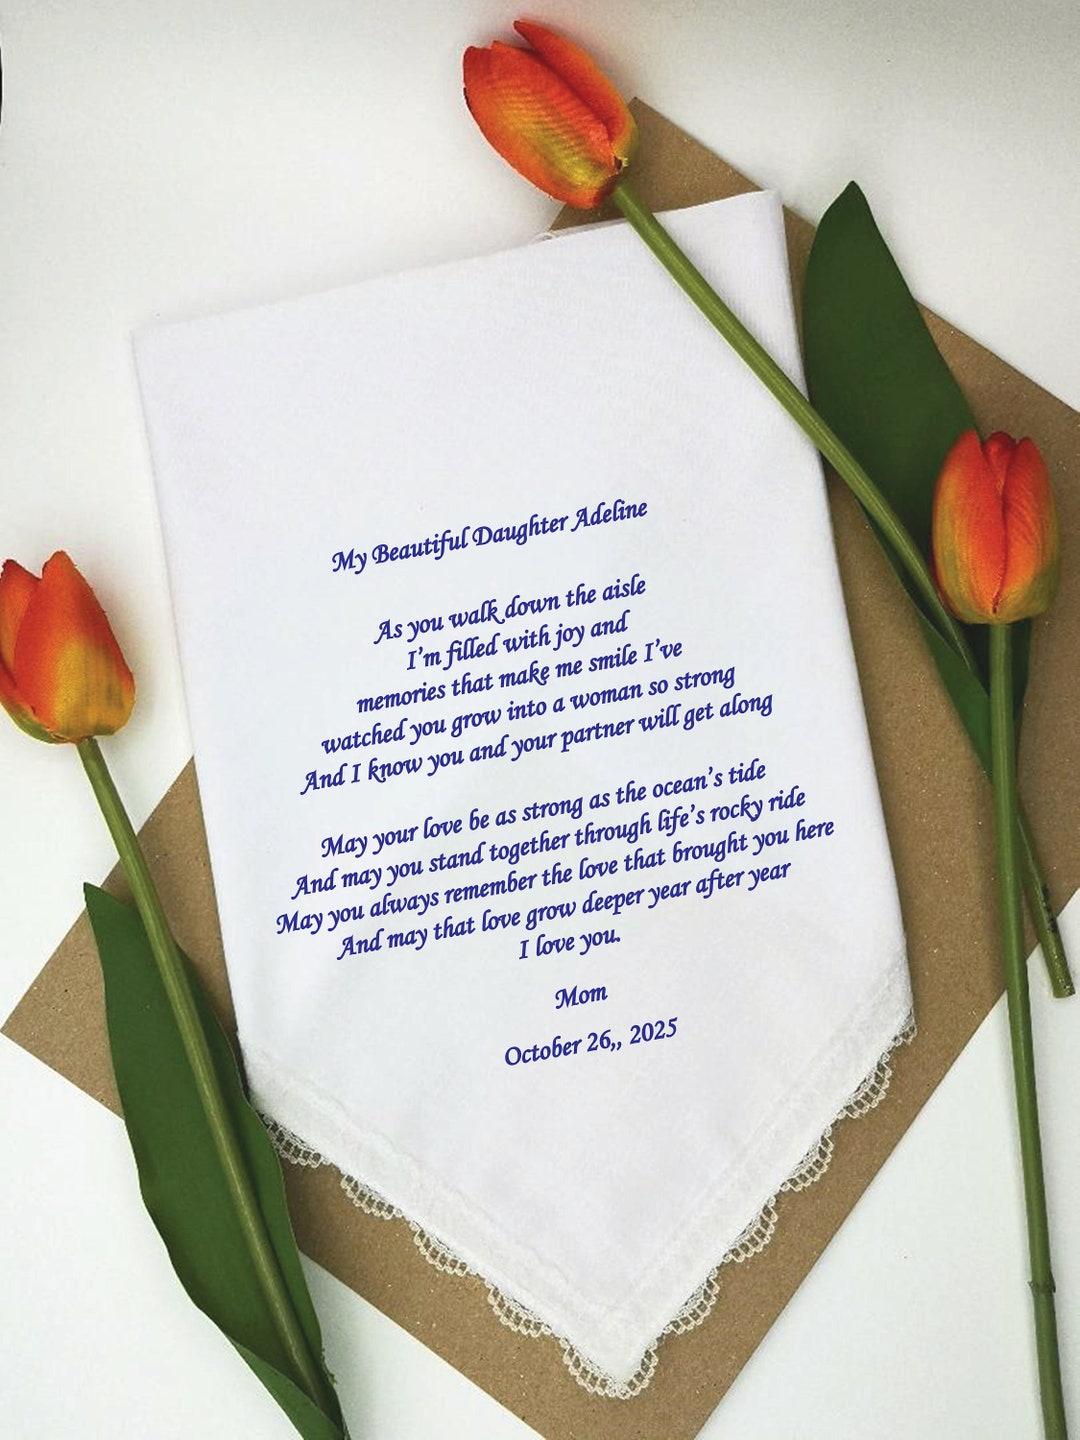 My Beautiful Daughter Adeline
As you walk down the aisle
I'm filled with joy and
memories that make me smile I've
watched you grow into a woman so strong
And I know you and your partner will get along
May your love be as strong as the ocean's tide
And may you stand together through life's rocky ride
May you always remember the love that brought you here
And may that love grow deeper year after year
I love you.
Mom
October 26,, 2025